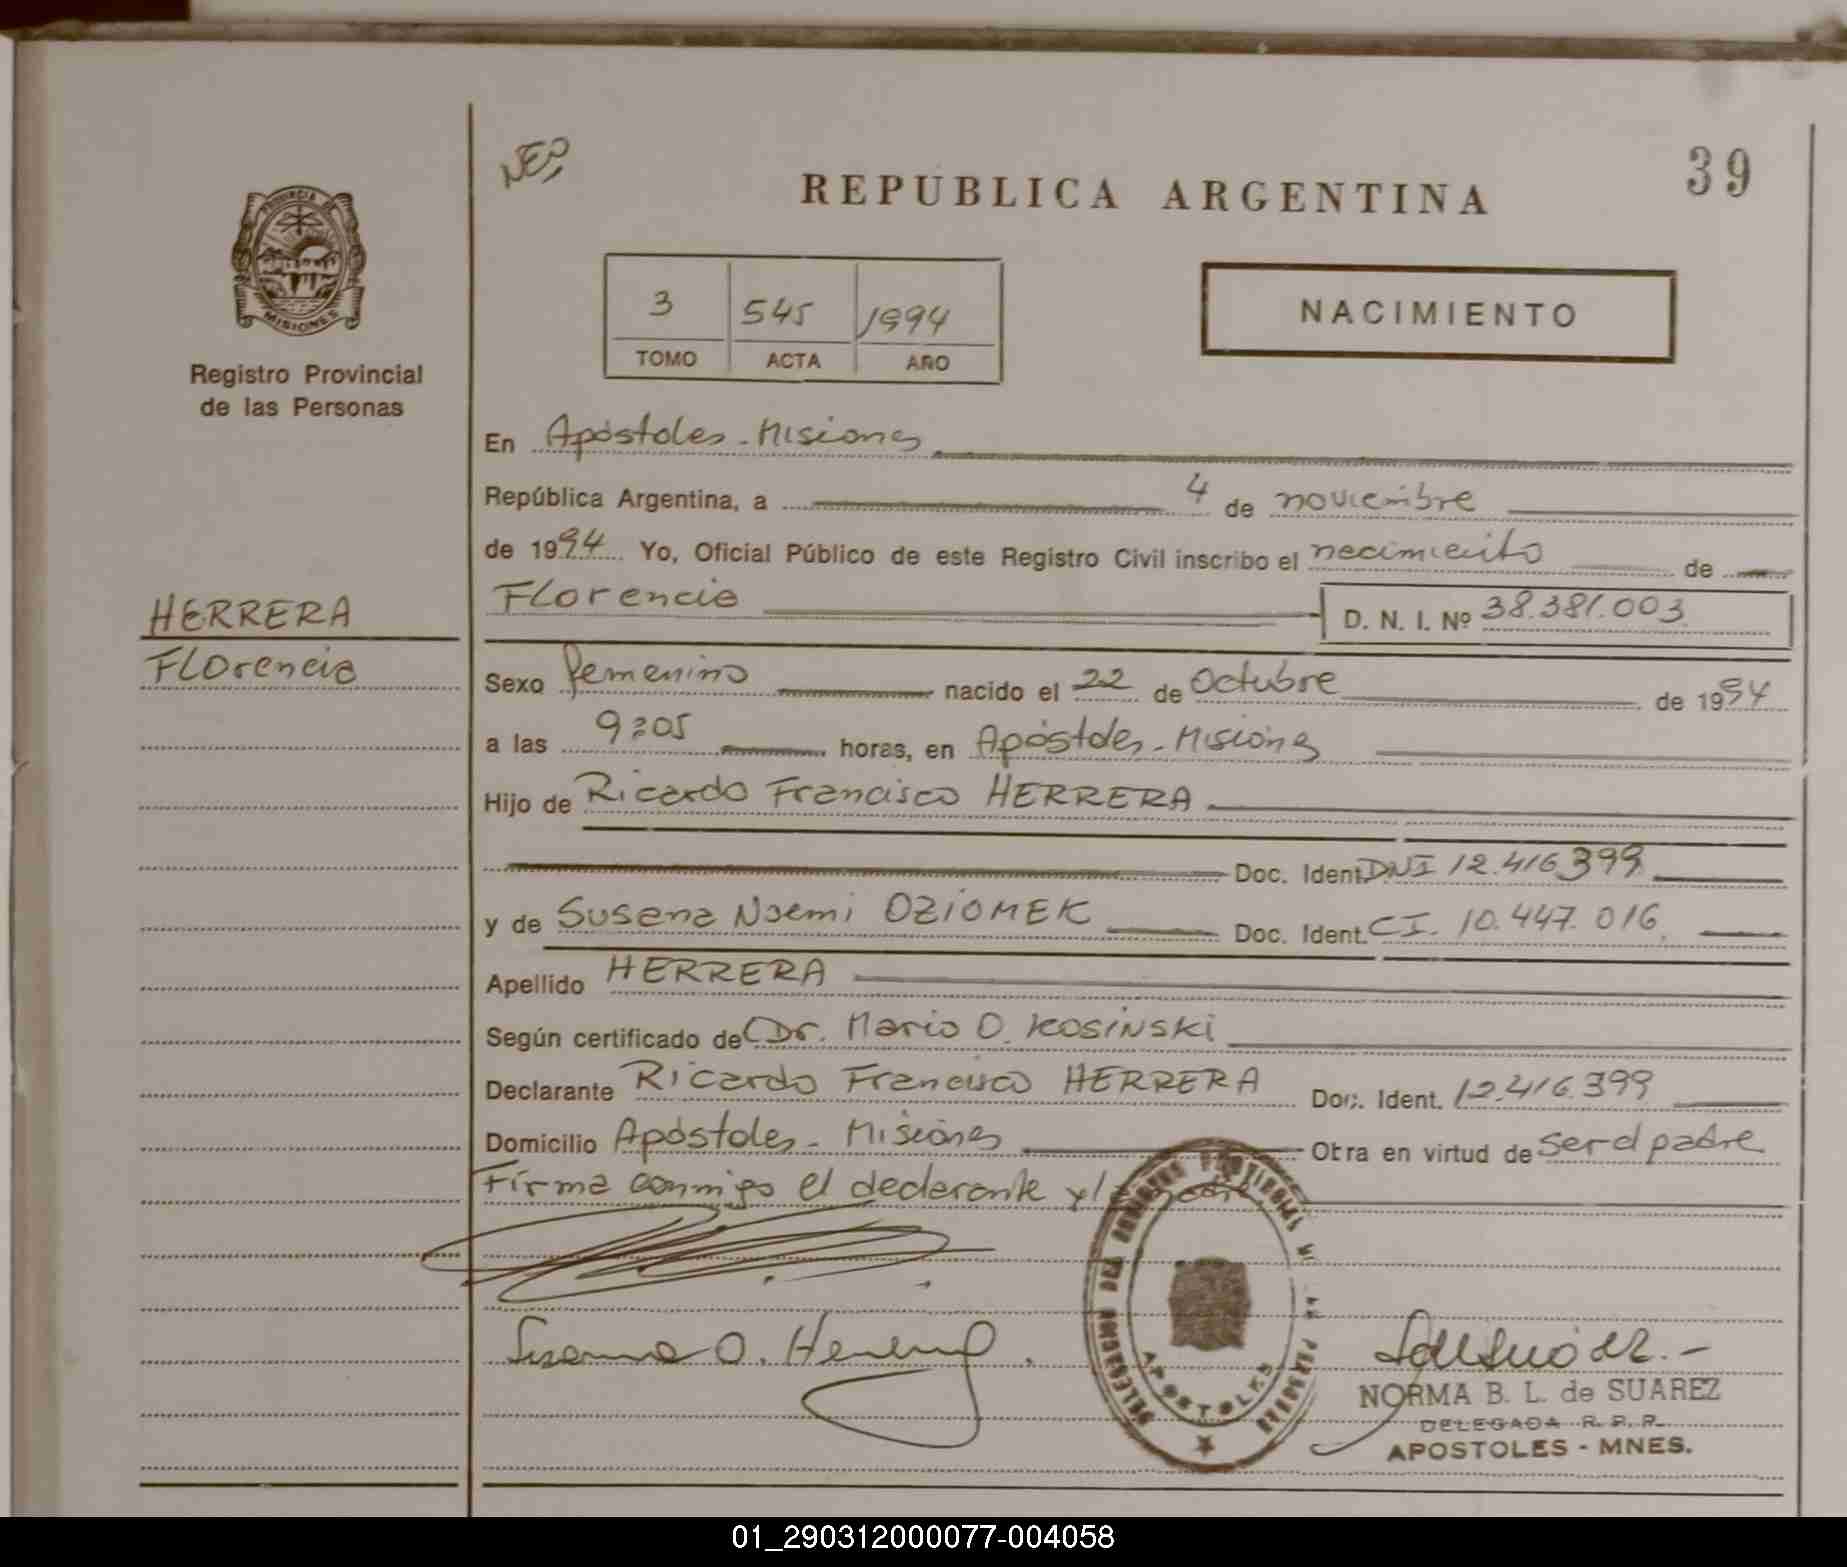 NEO
REPUBLICA ARGENTINA
39
PROVINCIA DE
MISIONES
Registro Provincial
de las Personas
3 545 1994
TOMO ACTA AÑO
NACIMIENTO
En Apóstoles - Misiones
República Argentina, a 4 de noviembre
de 1994 Yo, Oficial Público de este Registro Civil inscribo el nacimiento de
Florencia D. N. I. Nº 38.381.003
HERRERA
Florencia
Sexo femenino nacido el 22 de Octubre de 1994
a las 9:05 horas, en Apóstoles - Misiones
Hijo de Ricardo Francisco HERRERA
Doc. Ident. DNI 12.416.399
y de Susana Noemi OZIOMEK Doc. Ident. CI. 10.447.016
Apellido HERRERA
Según certificado de Dr. Mario O. Kosinski
Declarante Ricardo Francisco HERRERA Doc. Ident. 12.416.399
Domicilio Apóstoles - Misiones Otra en virtud de ser el padre
Firma conmigo el declarante y la madre
Susana O. Herrera.
APOSTOLES
NORMA B. L. de SUAREZ
DELEGADA R. P. P.
APOSTOLES - MNES.
01_290312000077-004058